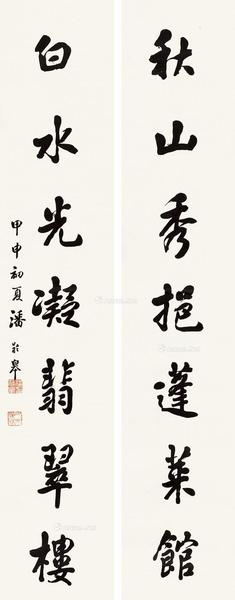 秋山秀挹蓬莱館
白水光凝翡翠樓
甲申初夏潘龄皋